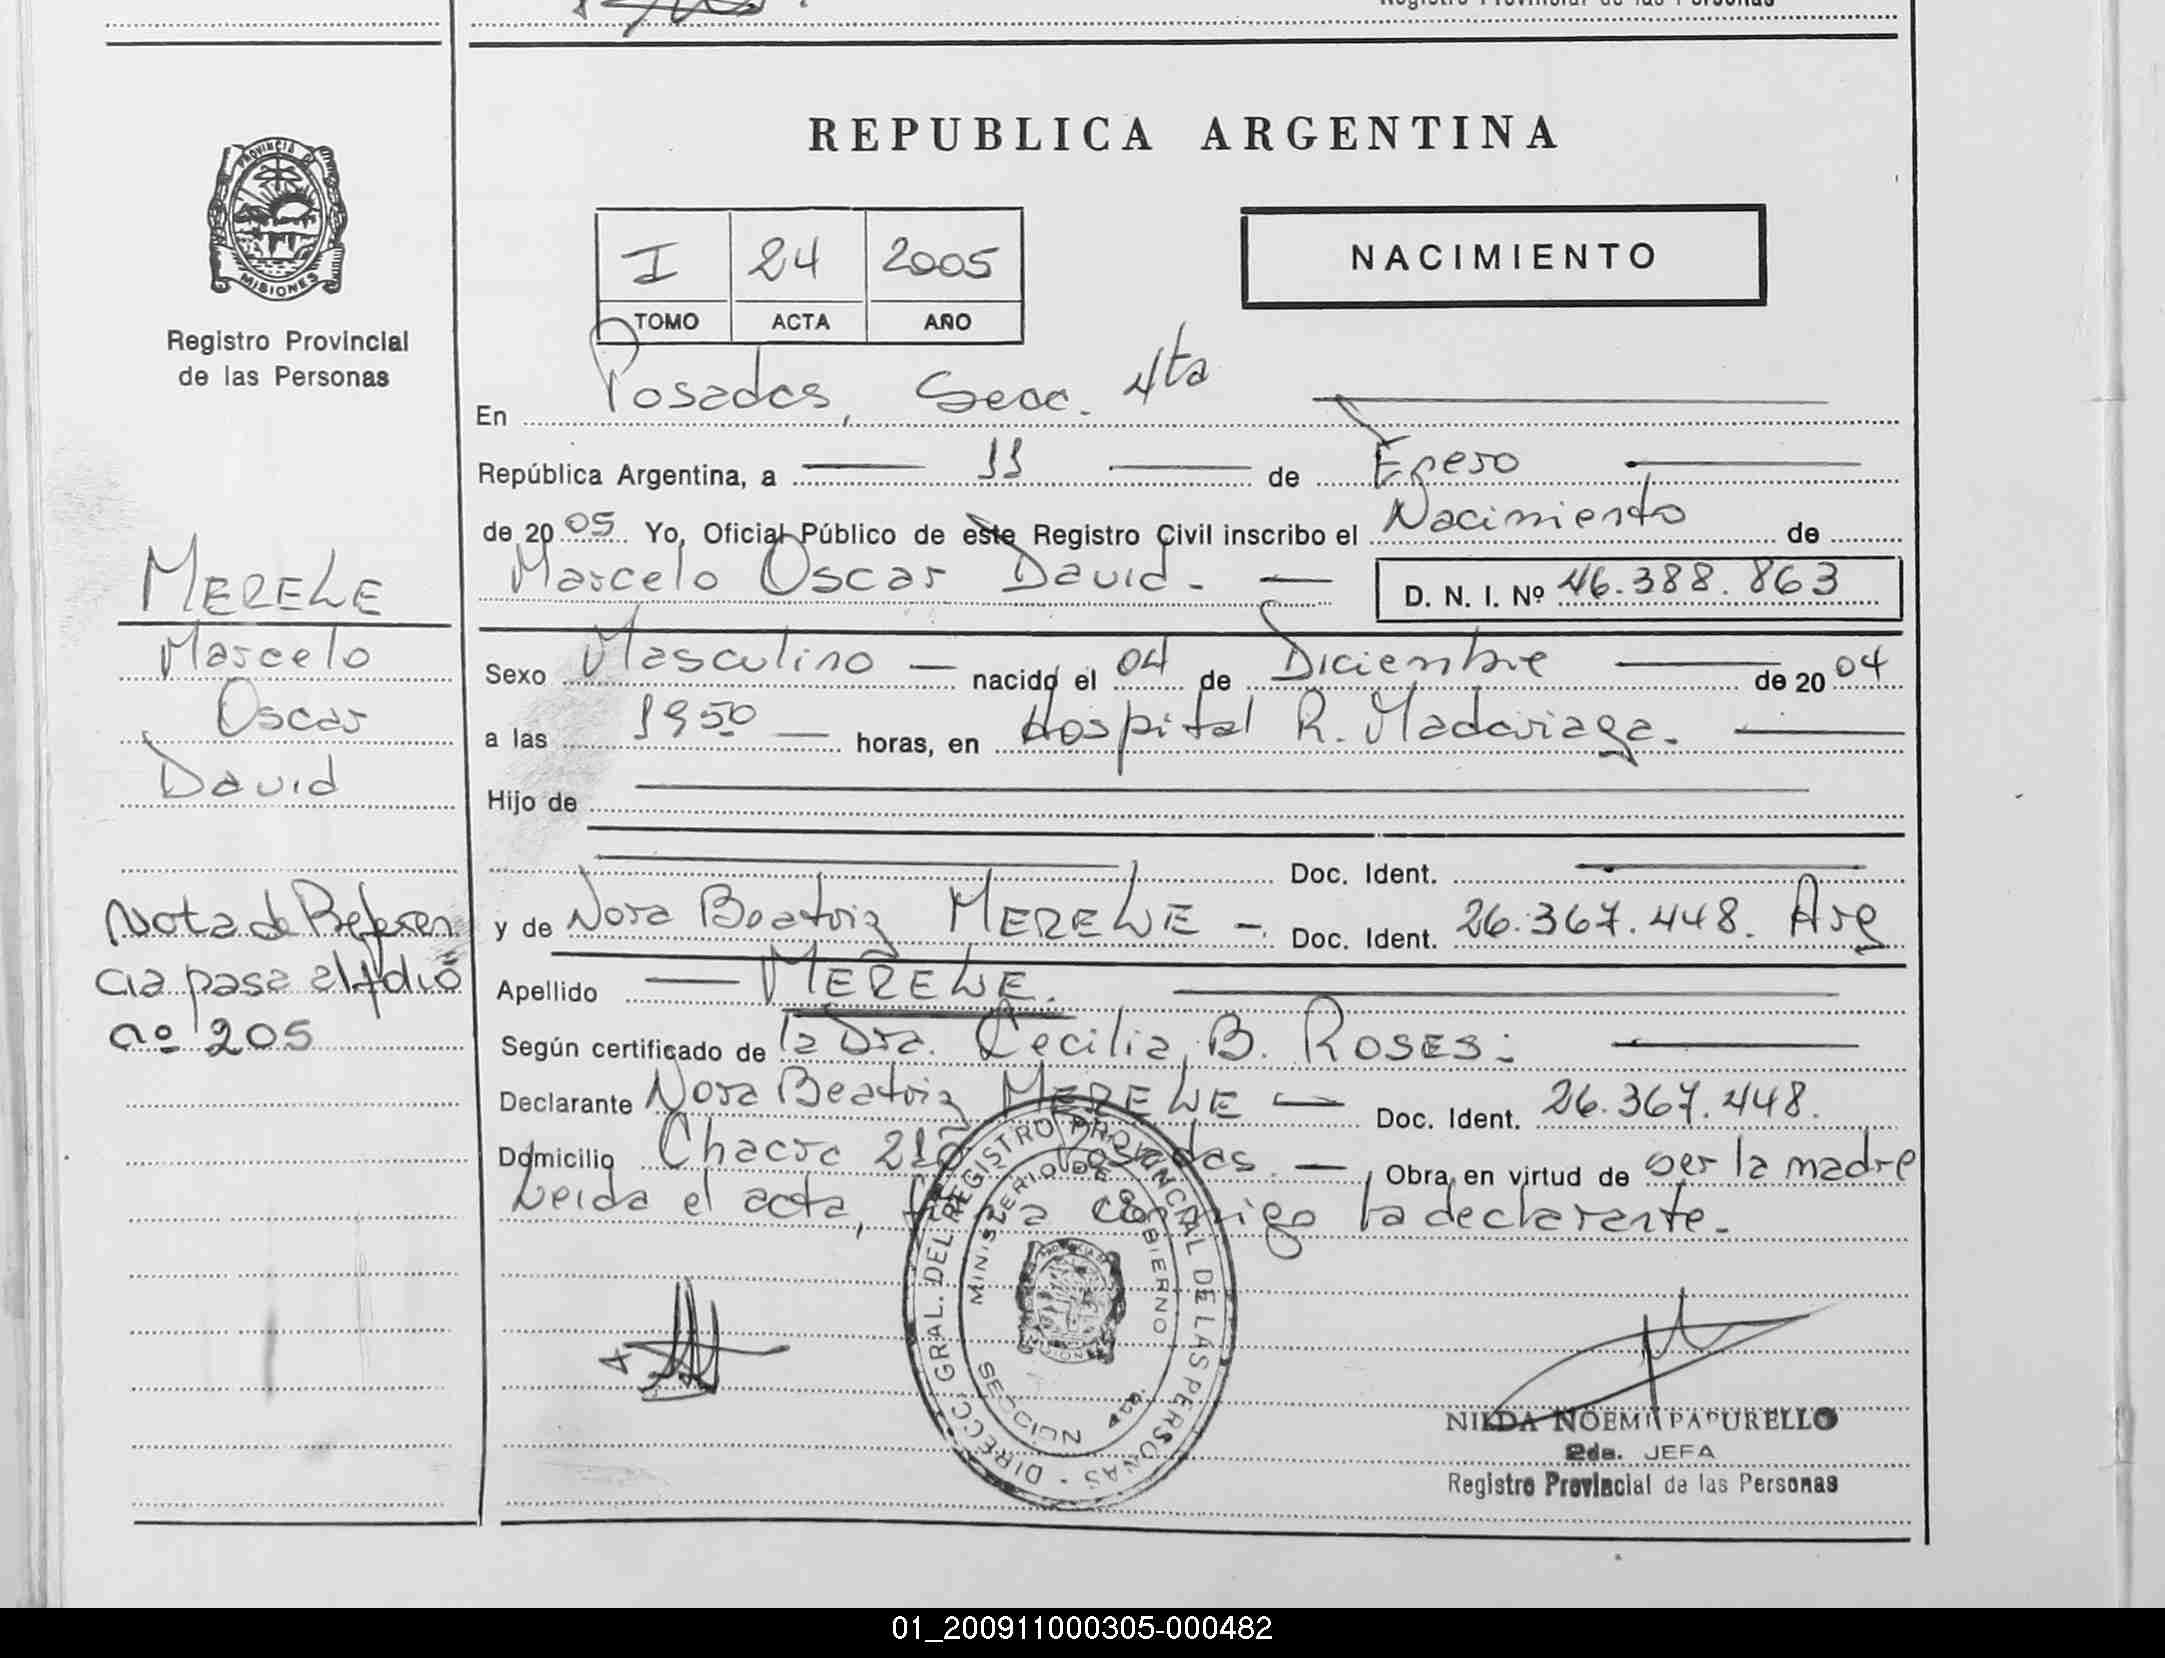 Registro Provincial de las Personas
REPUBLICA ARGENTINA
PROVINCIA DE MISIONES
Registro Provincial
de las Personas
I 24 2005
TOMO ACTA AÑO
NACIMIENTO
En Posadas, Secc. 4ta
República Argentina, a 11 de Enero
de 2005 Yo, Oficial Público de este Registro Civil inscribo el Nacimiento de
Marcelo Oscar David.- D. N. I. Nº 46.388.863
MERELE
Marcelo
Oscar
David
Sexo Masculino nacido el 04 de Diciembre de 2004
a las 1950 horas, en Hospital R. Madariaga.
Hijo de
Doc. Ident.
y de Nora Beatriz MERELE -. Doc. Ident. 26.367.448. Arg
Apellido MERELE.
Según certificado de la Dra. Cecilia B. ROSES.
Declarante Nora Beatriz MERELE Doc. Ident. 26.367.448.
Domicilio Chacra Posadas. Obra en virtud de ser la madre
Leida el acta, firma conmigo la declarante.
Nota de Referen
cia pasa al folio
nº 205
DIRECC. GRAL. DEL REGISTRO PROVINCIAL DE LAS PERSONAS
MINISTERIO DE GOBIERNO
SECCION 4ta.
NILDA NOEMI PAPURELLO
2da. JEFA
Registro Provincial de las Personas
01_200911000305-000482